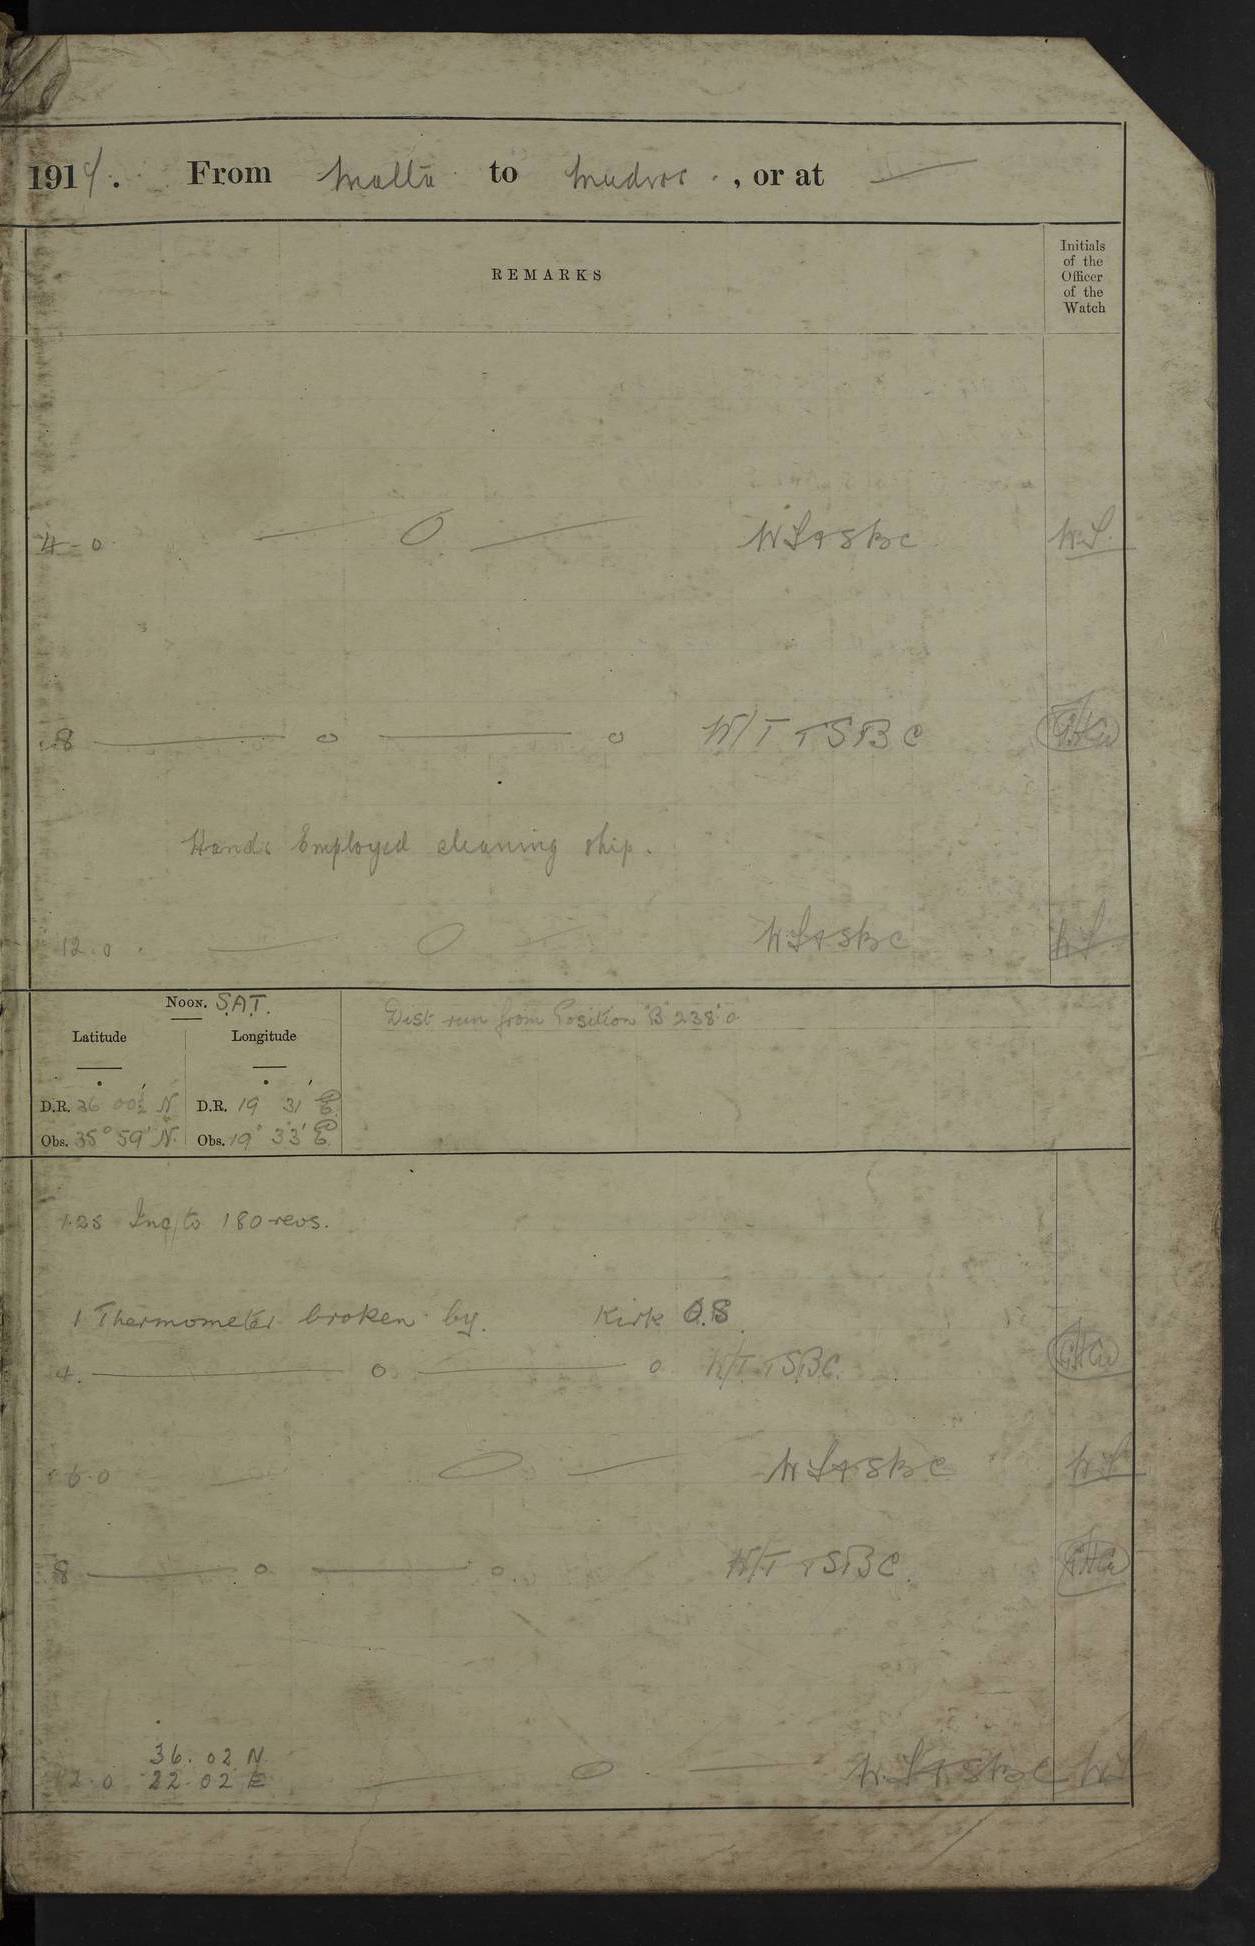 1914. From Malta to Mudros. , or at —
REMARKS
Initials
of the
Officer
of the
Watch
4-0 — O — W L & SBC W.L.
8 — o — o W/T TSBC
Hands Employed cleaning ship.
12.0 — O — W L & SBC W L
Noon. S.A.T.
Dist run from Position B 238'.0
Latitude Longitude
D.R. 36 00½ N D.R. 19 31 E
Obs. 35° 59' N. Obs. 19° 33' E
1.25 Inc/to 180 revs.
1 Thermometer broken by Kirk O.S.
4. — o — o W/T TSBC.
6.0 — O — W L & SBC W L
8 — o — o. W/T TSBC.
36.02 N
12.0 22.02 E — O — W. L & SBC W L